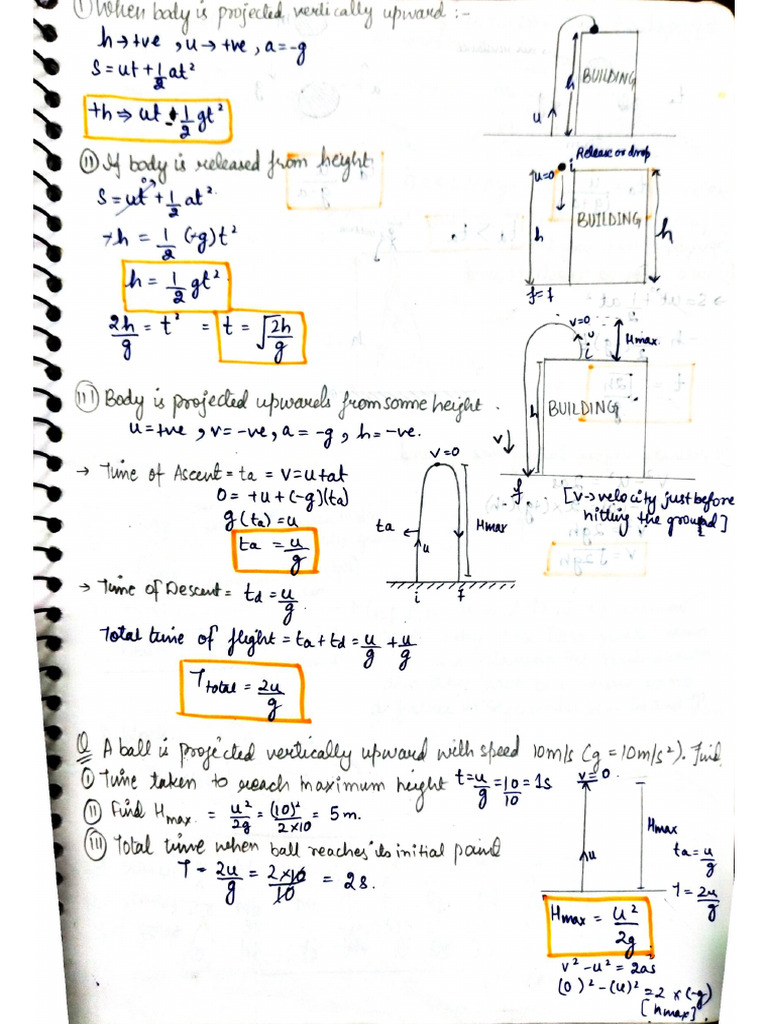 ① When body is projected vertically upward :-
h → +ve , u → +ve , a = -g
S = ut + 1/2 at²
+h ⇒ ut - 1/2 gt²
BUILDING
h
u
ⅱ If body is released from height
S = ut⁰ + 1/2 at²
-h = 1/2 (-g)t²
h = 1/2 gt²
2h/g = t² = t = √2h/g
Release or drop
u=0
i
BUILDING
h
h
f = f
ⅲ Body is projected upwards from some height.
u = +ve , v = -ve, a = -g , h = -ve.
v=0
u
i
Hmax
h
BUILDING
v
f
[v → velocity just before
hitting the ground]
→ Time of Ascent = ta = v = u + at
0 = +u + (-g)(ta)
g (ta) = u
ta = u/g
v=0
ta
u
Hmax
i
f
→ Time of Descent = td = u/g
Total time of flight = ta + td = u/g + u/g
T total = 2u/g
Q A ball is projected vertically upward with speed 10m/s (g = 10m/s²). Find
① Time taken to reach maximum height t = u/g = 10/10 = 1s
ⅱ Find Hmax. = u²/2g = (10)²/2×10 = 5 m.
ⅲ Total time when ball reaches its initial point
T = 2u/g = 2×10/10 = 2s.
v=0.
u
Hmax
ta = u/g
T = 2u/g
Hmax = u²/2g
v² - u² = 2as
(0)² - (u)² = 2 × (-g)
[hmax].